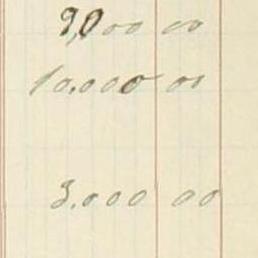 9,000 00
10.000 00
3.000 00